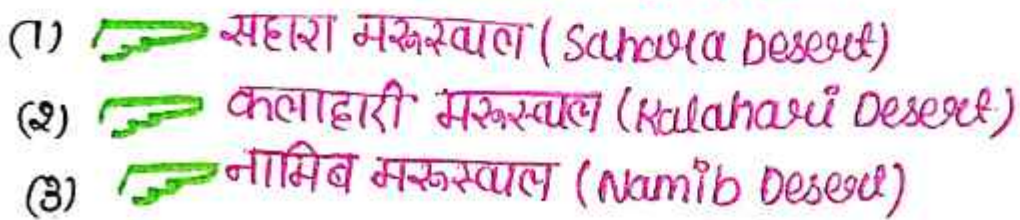 (1) सहारा मरूस्थल (Sahara Desert)
(2) कलाहारी मरूस्थल (Kalahari Desert)
(3) नामिब मरूस्थल (Namib Desert)